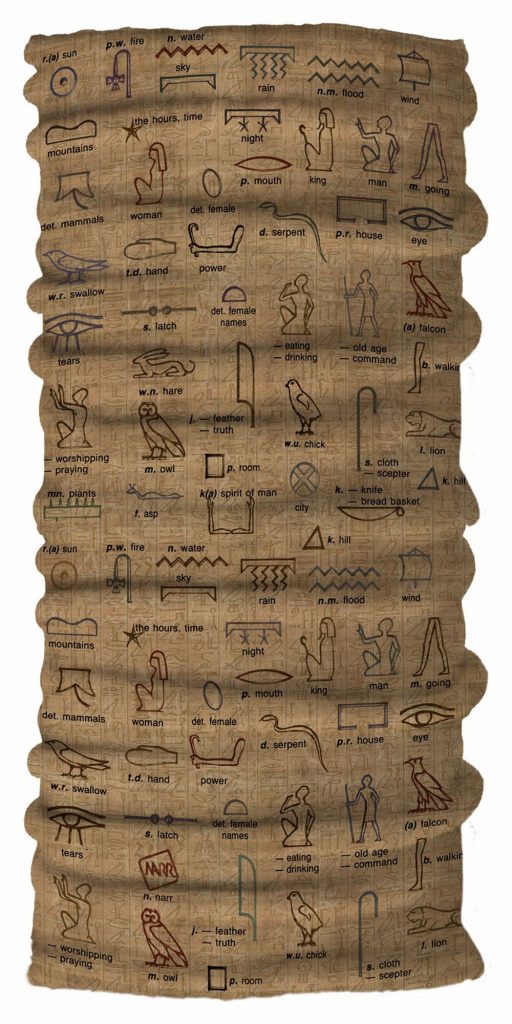 r.(a) sun
p.w. fire
n. water
sky
rain
n.m. flood
wind
mountains
the hours, time
night
p. mouth
king
man
m. going
det. mammals
woman
det. female
d. serpent
p.r. house
eye
w.r. swallow
t.d. hand
power
s. latch
det. female
names
— eating
— drinking
— old age
— command
(a) falcon
tears
w.n. hare
j. — feather
— truth
w.u. chick
b. walkin
— worshipping
— praying
m. owl
p. room
s. cloth
— scepter
l. lion
mn. plants
f. asp
k(a) spirit of man
city
k. — knife
— bread basket
k. hill
k. hill
r.(a) sun
p.w. fire
n. water
sky
rain
n.m. flood
wind
mountains
the hours, time
night
p. mouth
king
man
m. going
det. mammals
woman
det. female
d. serpent
p.r. house
eye
w.r. swallow
t.d. hand
power
s. latch
det. female
names
— eating
— drinking
— old age
— command
(a) falcon
tears
NARR
n. narr
j. — feather
— truth
w.u. chick
b. walkin
— worshipping
— praying
m. owl
p. room
s. cloth
— scepter
l. lion